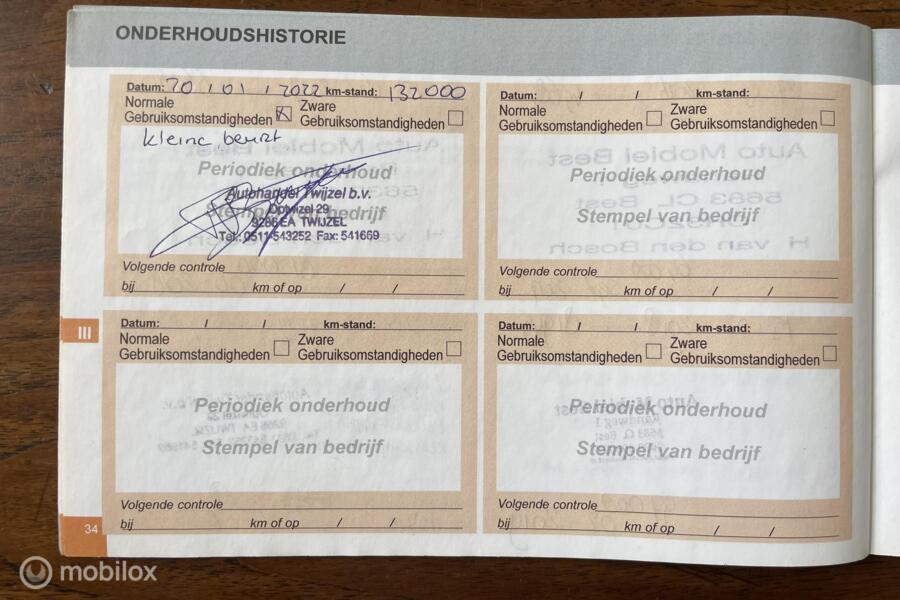 ONDERHOUDSHISTORIE
Datum: 20 / 01 / 2022 km-stand: 132000
Normale Gebruiksomstandigheden Zware Gebruiksomstandigheden
kleine beurt
Periodiek onderhoud
Autohandel Twijzel b.v.
Optwizel 29
Stempel van bedrijf
9286 EA TWIJZEL
Tel.: 0511-543252 Fax: 541669
Volgende controle
bij km of op / /
Datum: / / km-stand:
Normale Gebruiksomstandigheden Zware Gebruiksomstandigheden
Periodiek onderhoud
Stempel van bedrijf
Volgende controle
bij km of op / /
III
Datum: / / km-stand:
Normale Gebruiksomstandigheden Zware Gebruiksomstandigheden
Periodiek onderhoud
Stempel van bedrijf
Volgende controle
bij km of op / /
Datum: / / km-stand:
Normale Gebruiksomstandigheden Zware Gebruiksomstandigheden
Periodiek onderhoud
Stempel van bedrijf
Volgende controle
bij km of op / /
34
mobilox